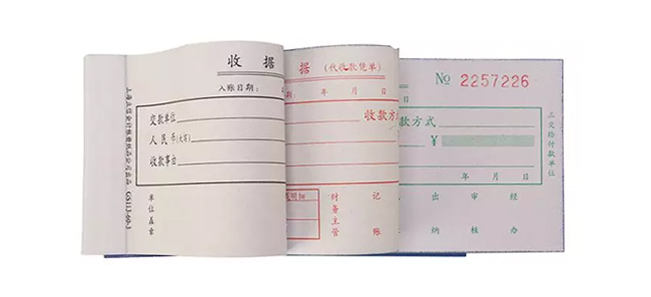 收 据
入账日期：
交款单位
人民币(大写)
收款事由
单位盖章
GS113-60-3
据 (代收款凭单)
年 月 日
收款方
财务主管
记账
№ 2257226
日
款方式
￥
年 月 日
三交给付款单位
出纳
审核
经办